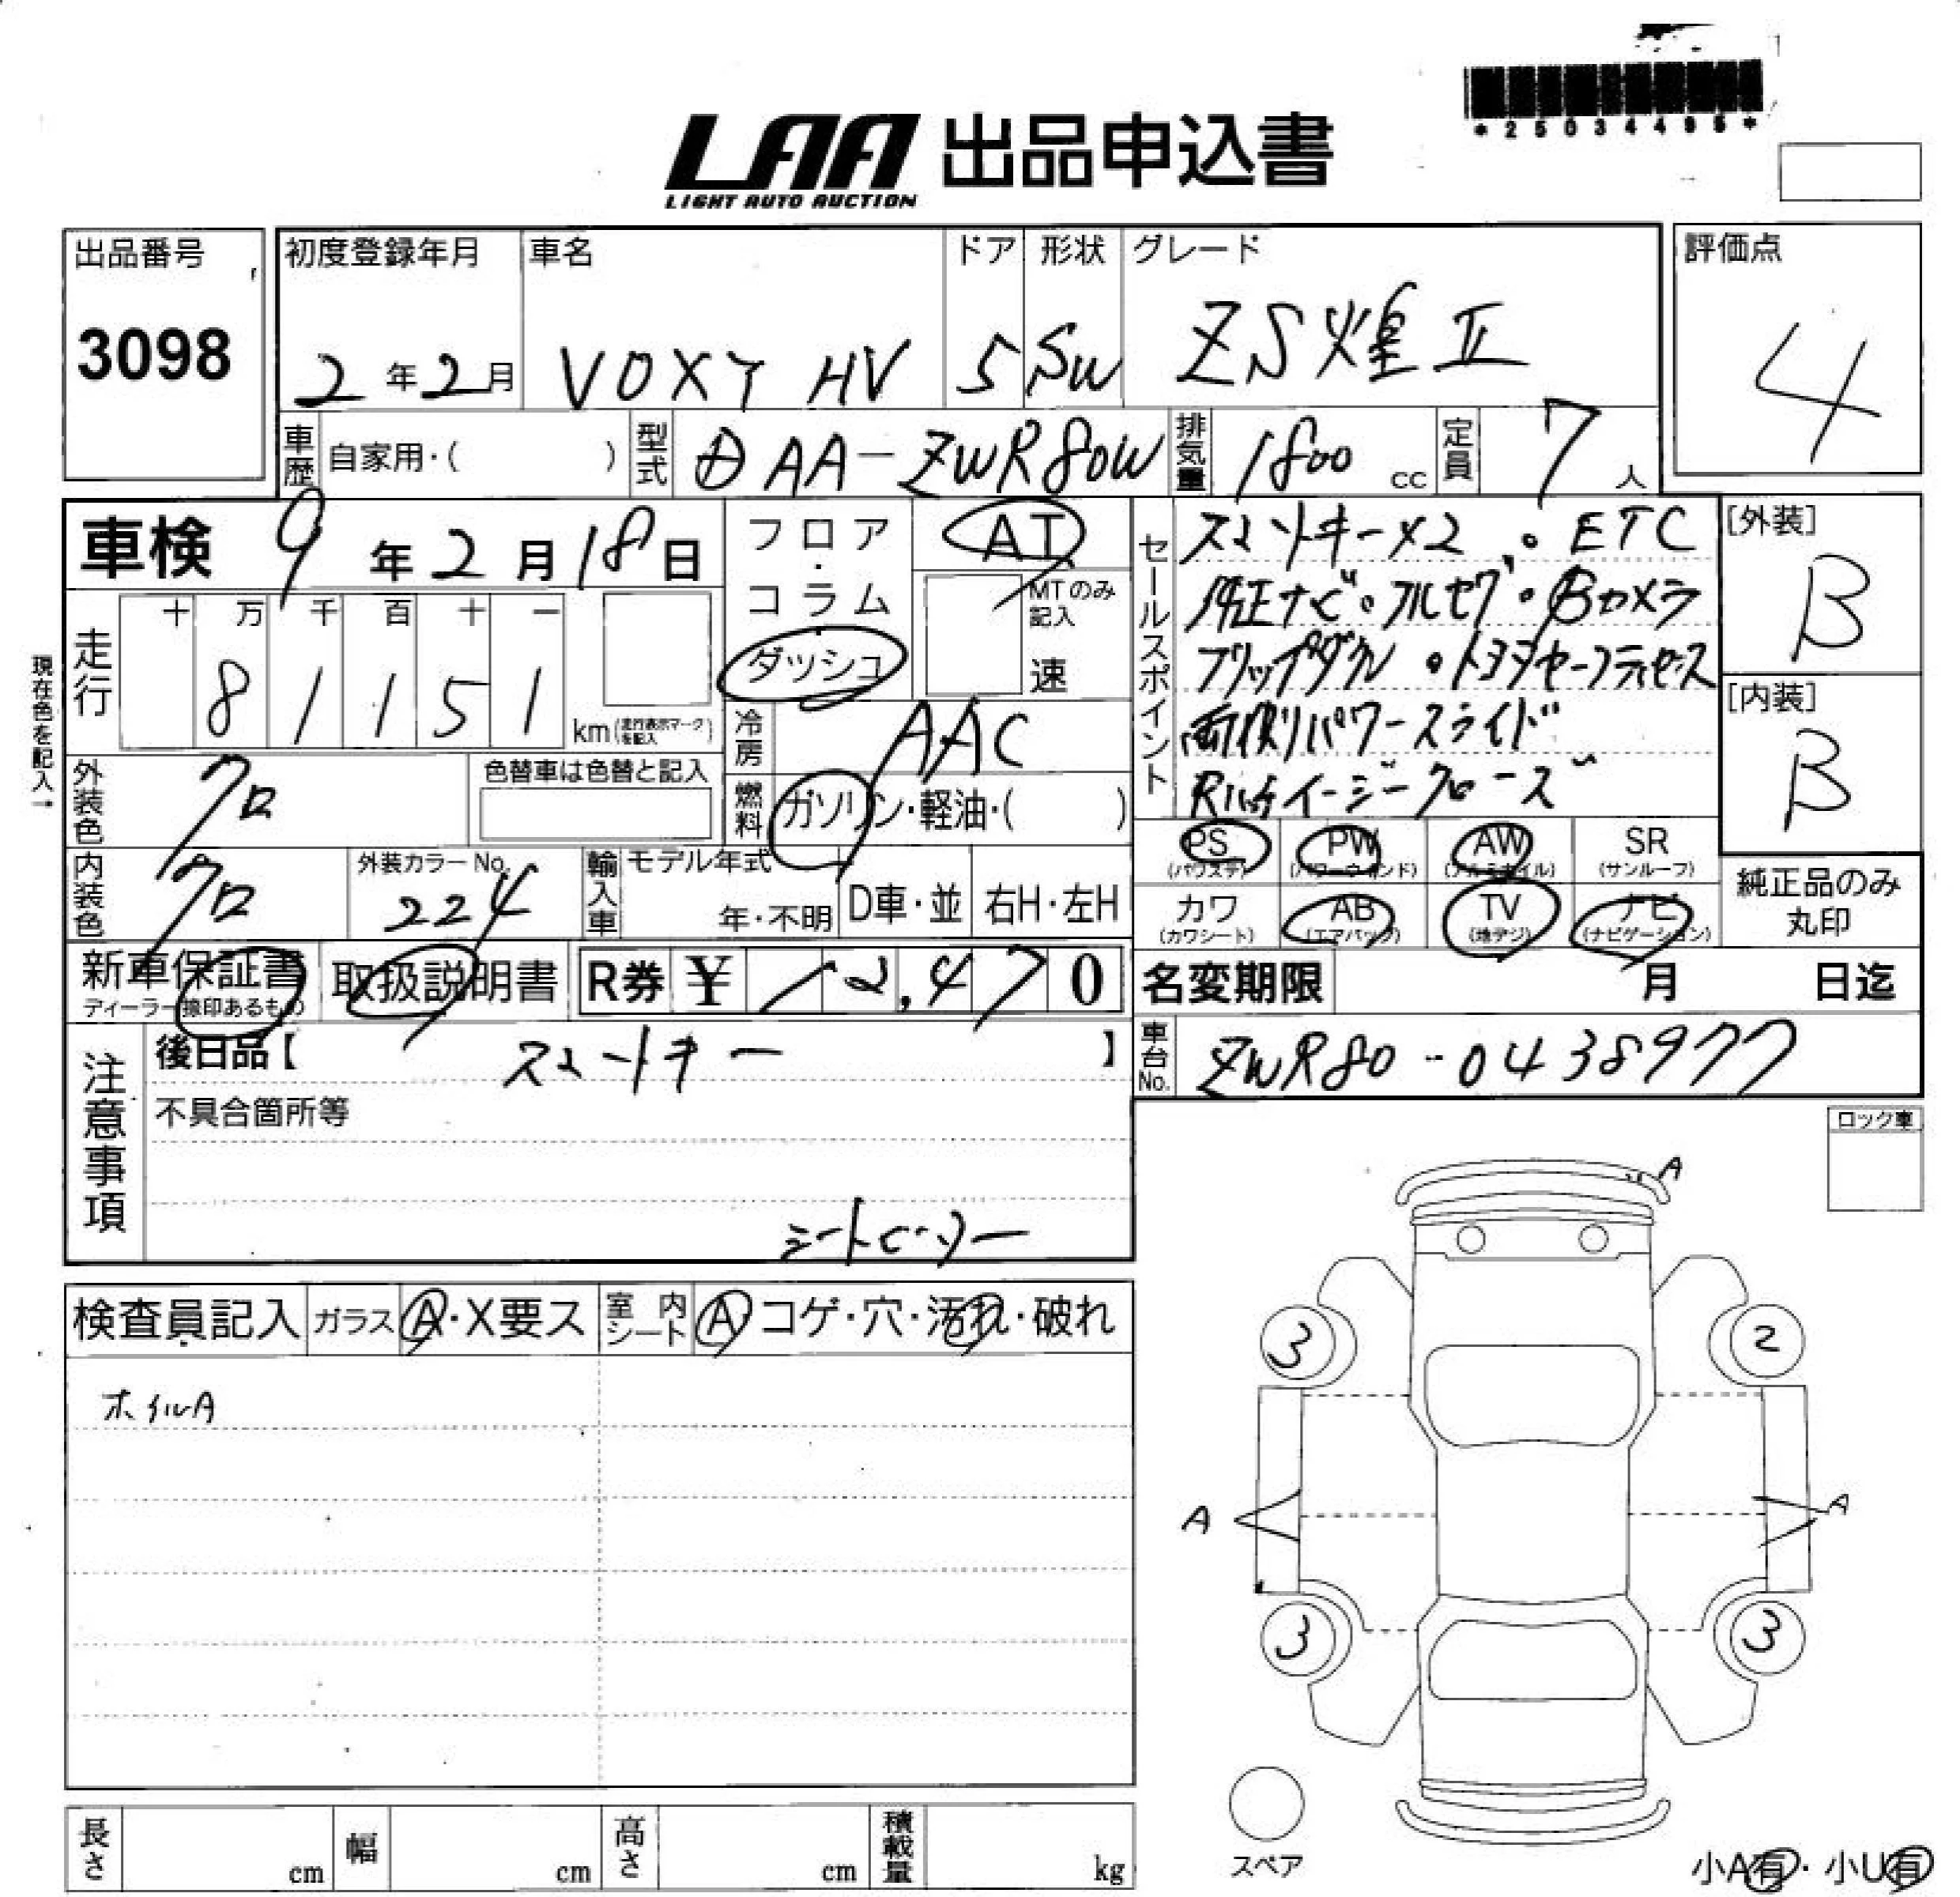 *25034495*
LAA 出品申込書
LIGHT AUTO AUCTION
出品番号
3098
初度登録年月
2年2月
車名
VOXY HV
ドア
5
形状
SW
グレード
ZS煌Ⅱ
評価点
4
車歴
自家用・( )
型式
DAA-ZWR80W
排気量
1800 cc
定員
7人
車検 9年2月18日
フロア・コラム
ダッシュ
AT
MTのみ記入
速
現在色を記入→
走行
十 万 千 百 十 一
8 1 1 5 1
km(走行表示マークを記入)
冷房
AAC
燃料
ガソリン・軽油・( )
外装色
クロ
色替車は色替と記入
内装色
クロ
外装カラーNo.
224
輸入車
モデル年式
年・不明
D車・並
右H・左H
セールスポイント
スマートキー×2 。ETC
純正ナビ・フルセグ・Bカメラ
フリップダウン・トヨタセーフティセンス
両側パワースライド
Rハッチイージークローズ
[外装]
B
[内装]
B
PS
(パワステ)
PW
(パワーウィンド)
AW
(アルミホイル)
SR
(サンルーフ)
カワ
(カワシート)
AB
(エアバック)
TV
(地デジ)
ナビ
(ナビゲーション)
純正品のみ
丸印
新車保証書
ディーラー捺印あるもの
取扱説明書
R券 ¥ 12,470
名変期限 月 日迄
注意事項
後日品【 スマートキー 】
不具合箇所等
車台No.
ZWR80-0438977
ロック車
検査員記入
ガラス
A・X要ス
室内シート
A コゲ・穴・汚れ・破れ
ホイルA
A
3
2
A
A
3
3
スペア
小A有・小U有
長さ cm
幅 cm
高さ cm
積載量 kg